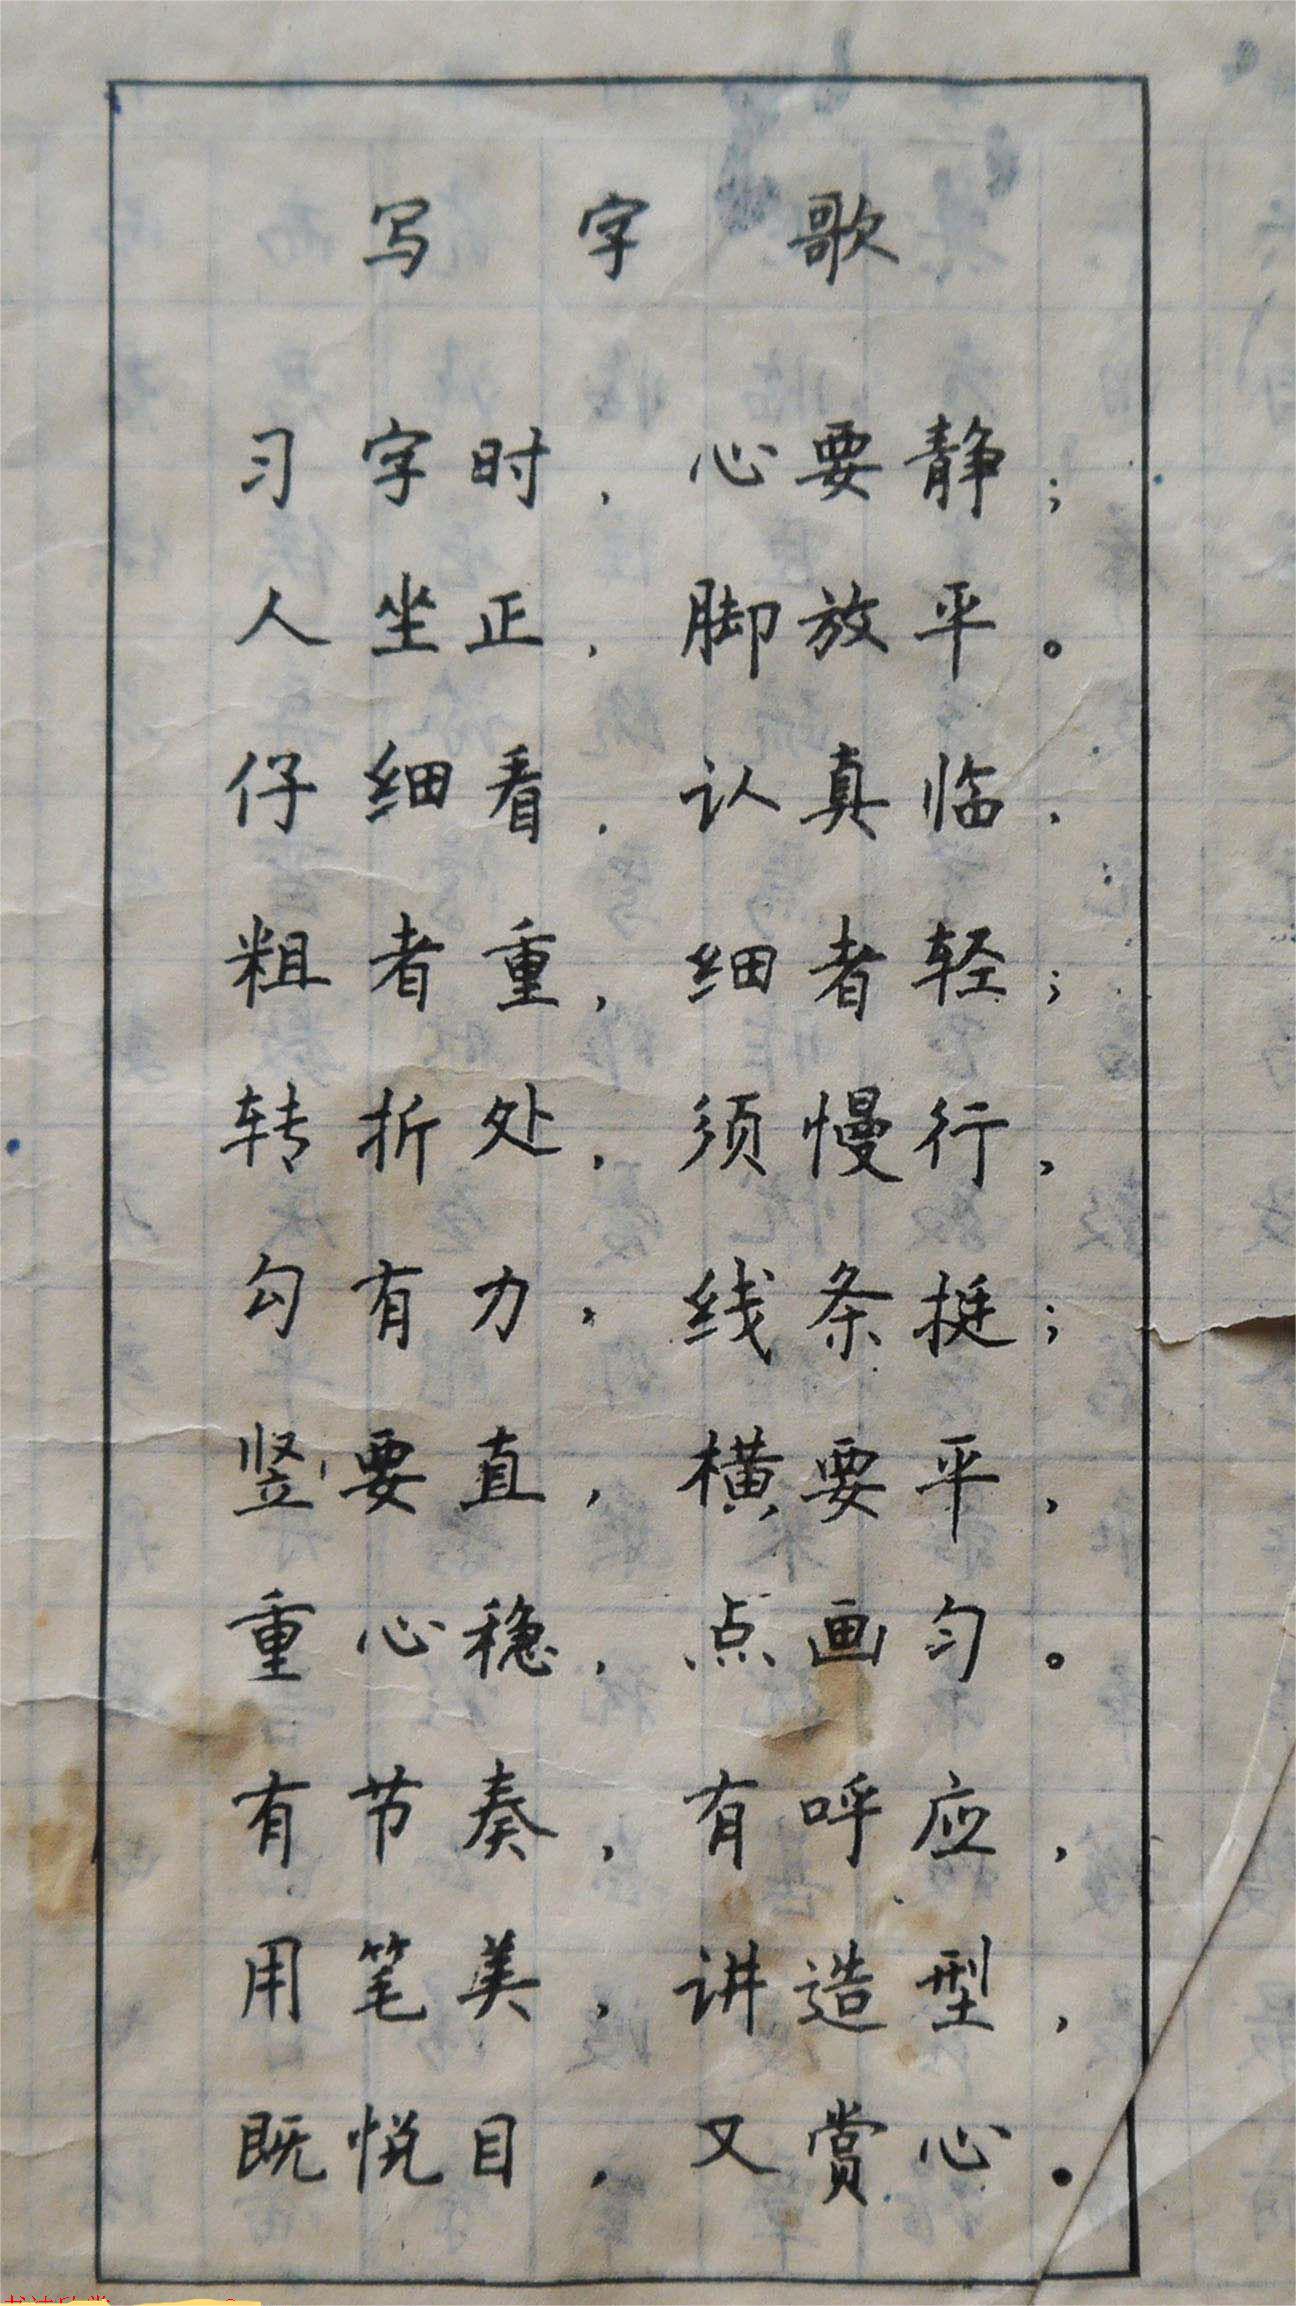 写字歌
习字时，心要静；
人坐正，脚放平。
仔细看，认真临，
粗者重，细者轻；
转折处，须慢行，
勾有力，线条挺；
竖要直，横要平，
重心稳，点画匀。
有节奏，有呼应，
用笔美，讲造型，
既悦目，又赏心。